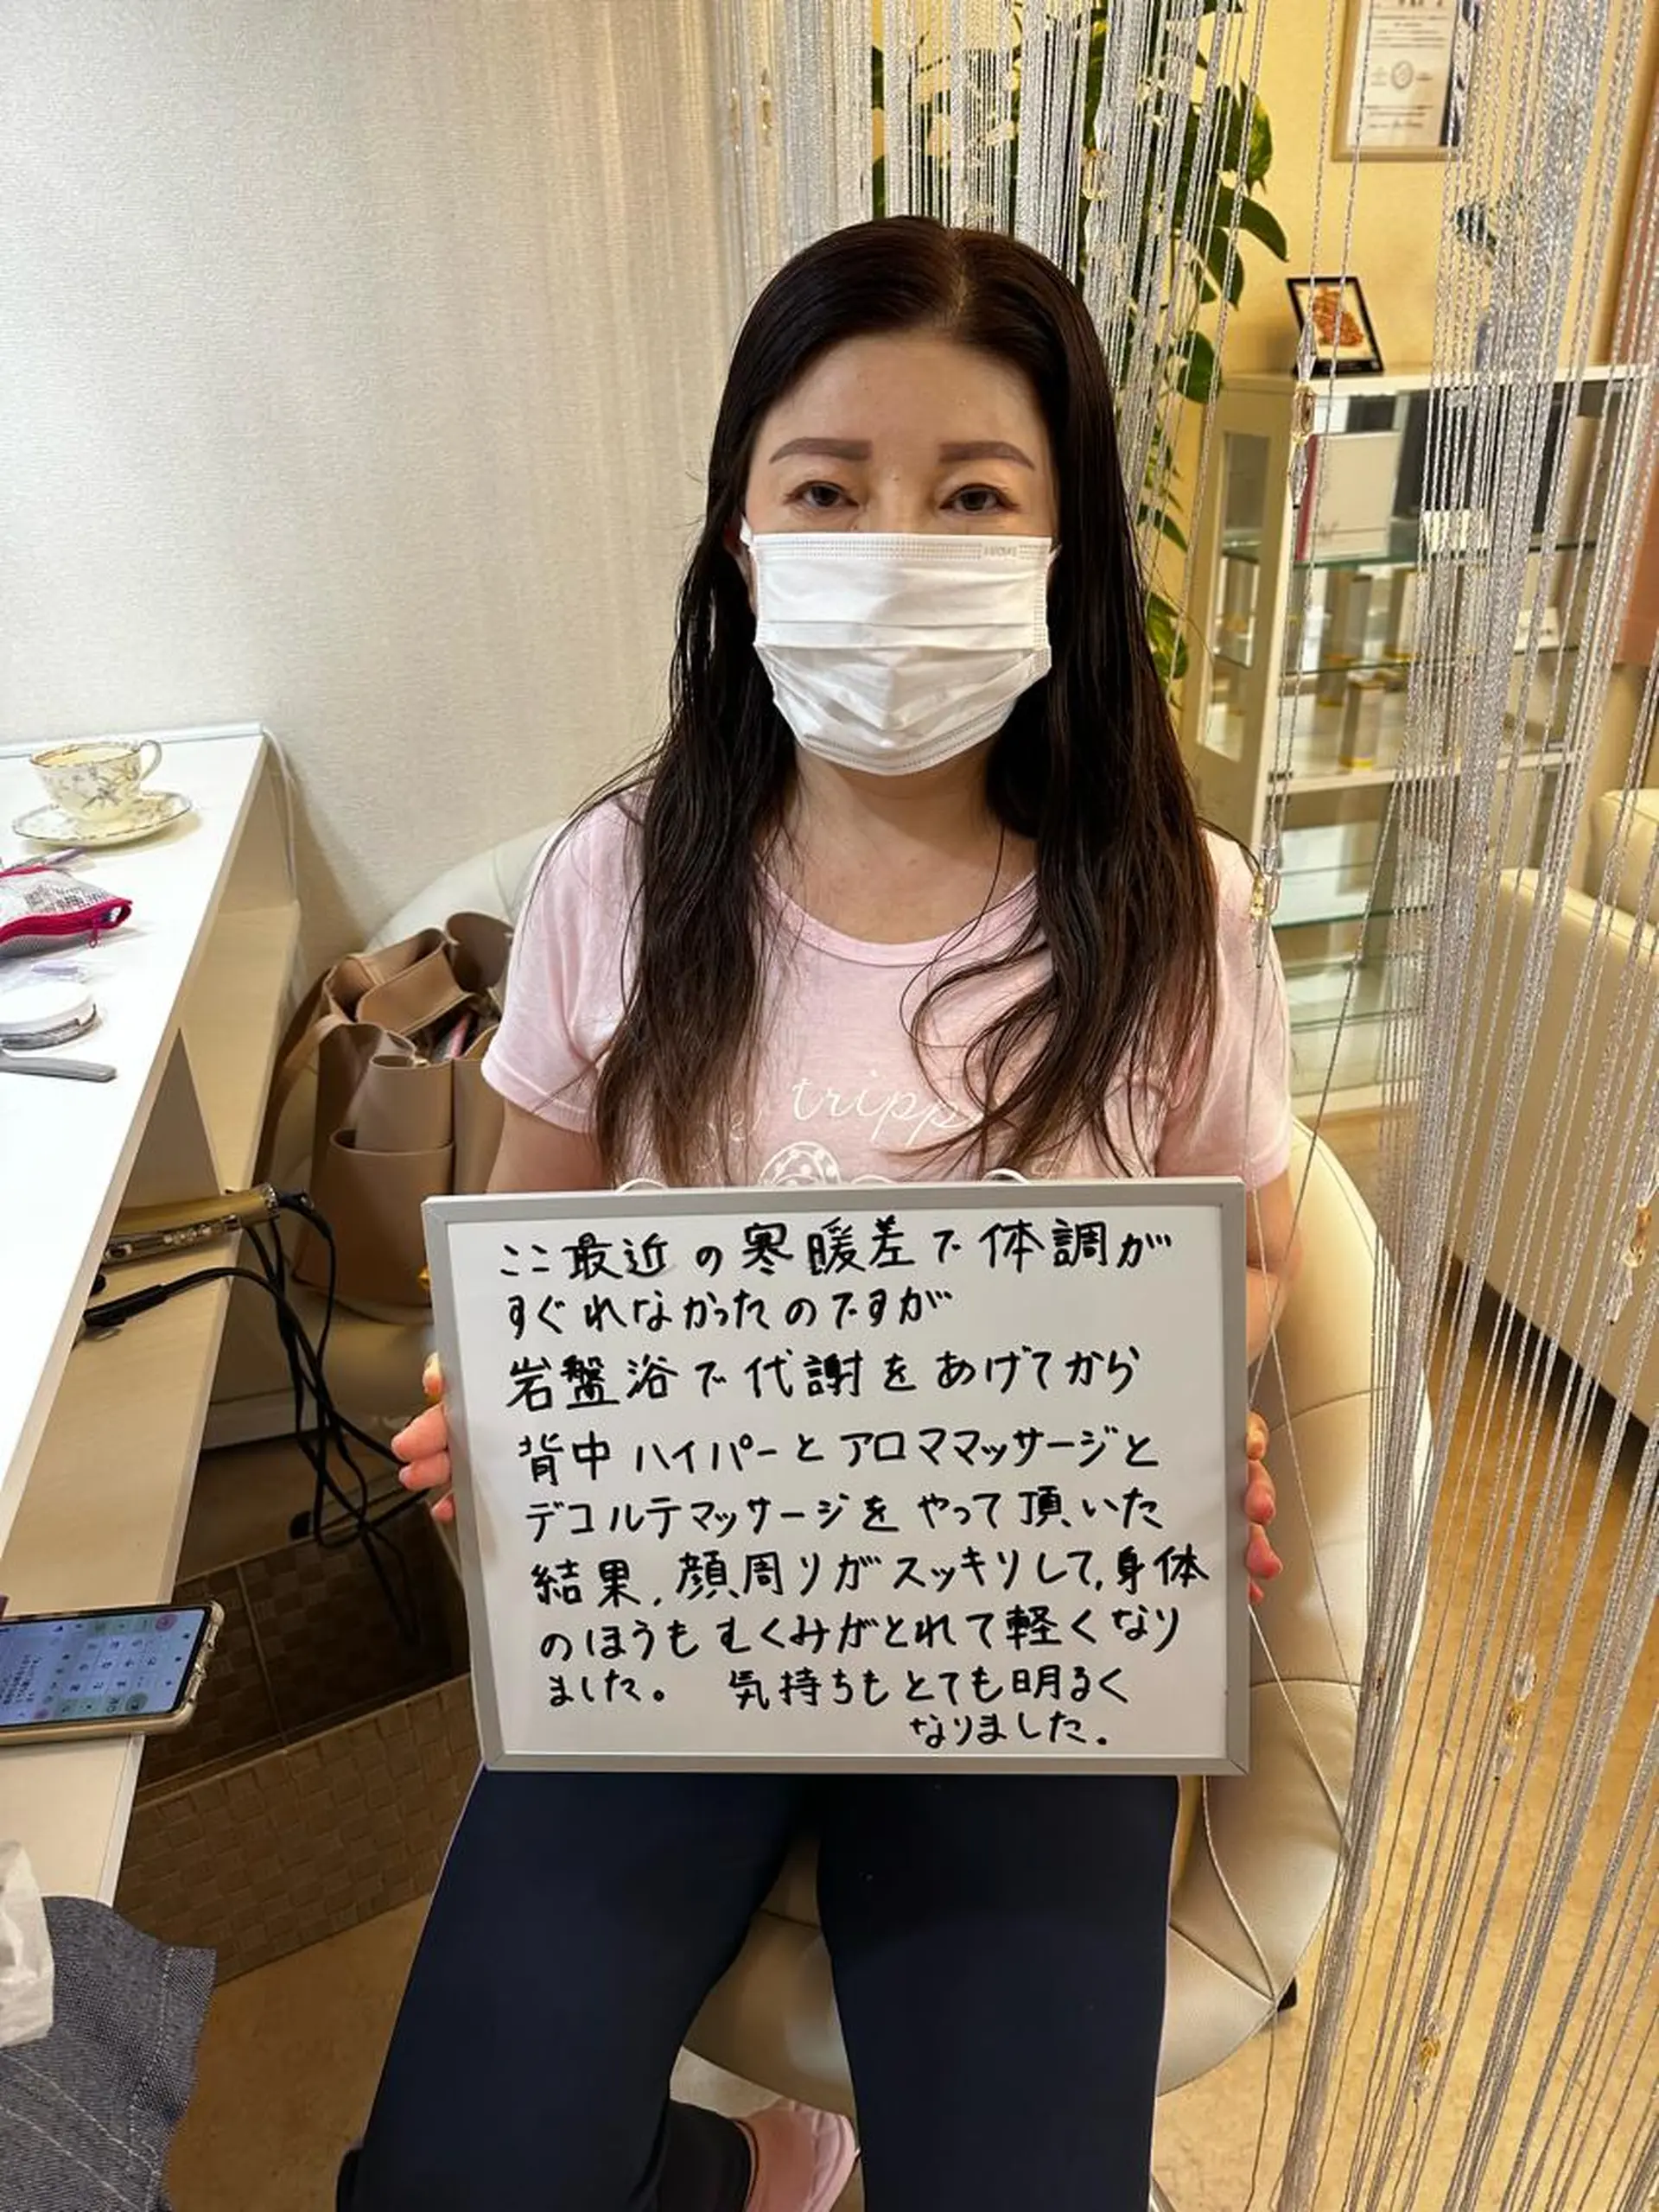 trippe
ここ最近の寒暖差で体調が
すぐれなかったのですが
岩盤浴で代謝をあげてから
背中ハイパーとアロママッサージと
デコルテマッサージをやって頂いた
結果、顔周りがスッキリして、身体
のほうもむくみがとれて軽くなり
ました。 気持ちもとても明るく
なりました。